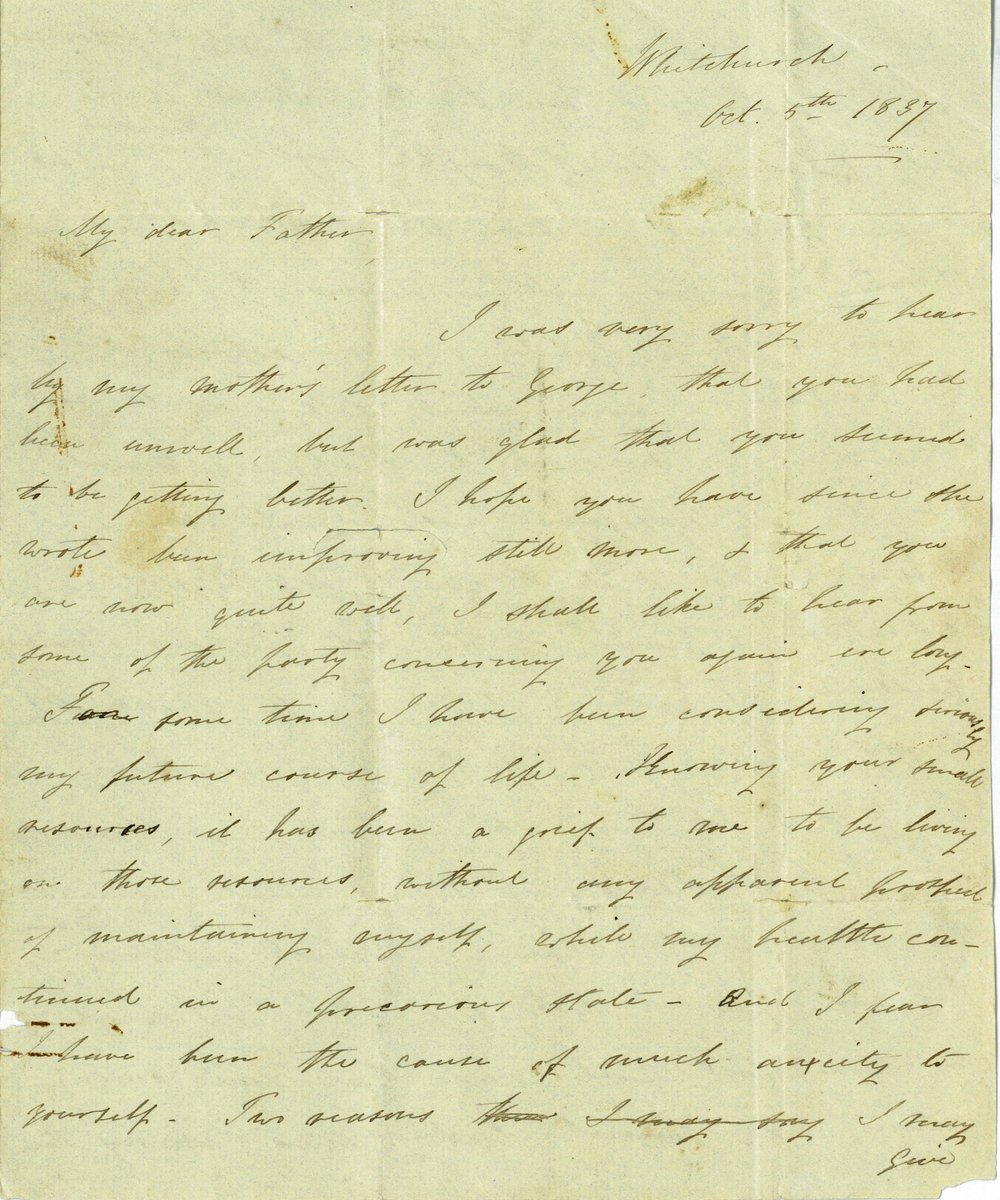 Whitchurch -
Oct. 5th 1837
My dear Father,
I was very sorry to hear
by my mother's letter to George, that you had
been unwell, but was glad that you seemed
to be getting better. I hope you have since she
wrote been improving still more, & that you
are now quite well, I shall like to hear from
some of the party concerning you again ere long.
For some time I have been considering seriously
my future course of life - Knowing your small
resources, it has been a grief to me to be living
on those resources, without any apparent prospect
of maintaining myself, while my health con-
tinued in a precarious state - And I fear
I have been the cause of much anxiety to
yourself - Two reasons I may say I may
Give